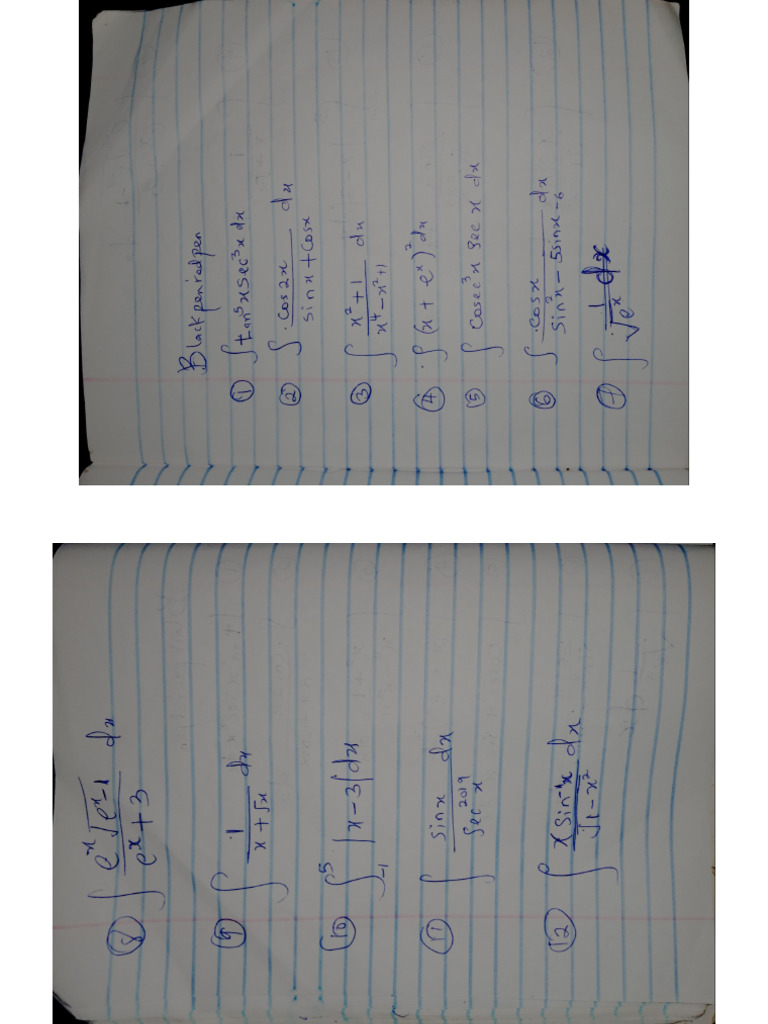 Blackpenredpen
① ∫ tan⁵x sec³x dx
② ∫ cos2x / (sinx + cosx) dx
③ ∫ (x² + 1) / (x⁴ - x² + 1) dx
④ ∫ (x + eˣ)² dx
⑤ ∫ cosec³x sec x dx
⑥ ∫ cosx / (sin²x - 5sinx - 6) dx
⑦ ∫ 1 / √eˣ dx
⑧ ∫ eˣ √(eˣ - 1) / (eˣ + 3) dx
⑨ ∫ 1 / (x + √x) dx
⑩ ∫₋₁⁵ |x - 3| dx
⑪ ∫ sinx / sec²⁰¹⁹x dx
⑫ ∫ x sin⁻¹x / √(1 - x²) dx